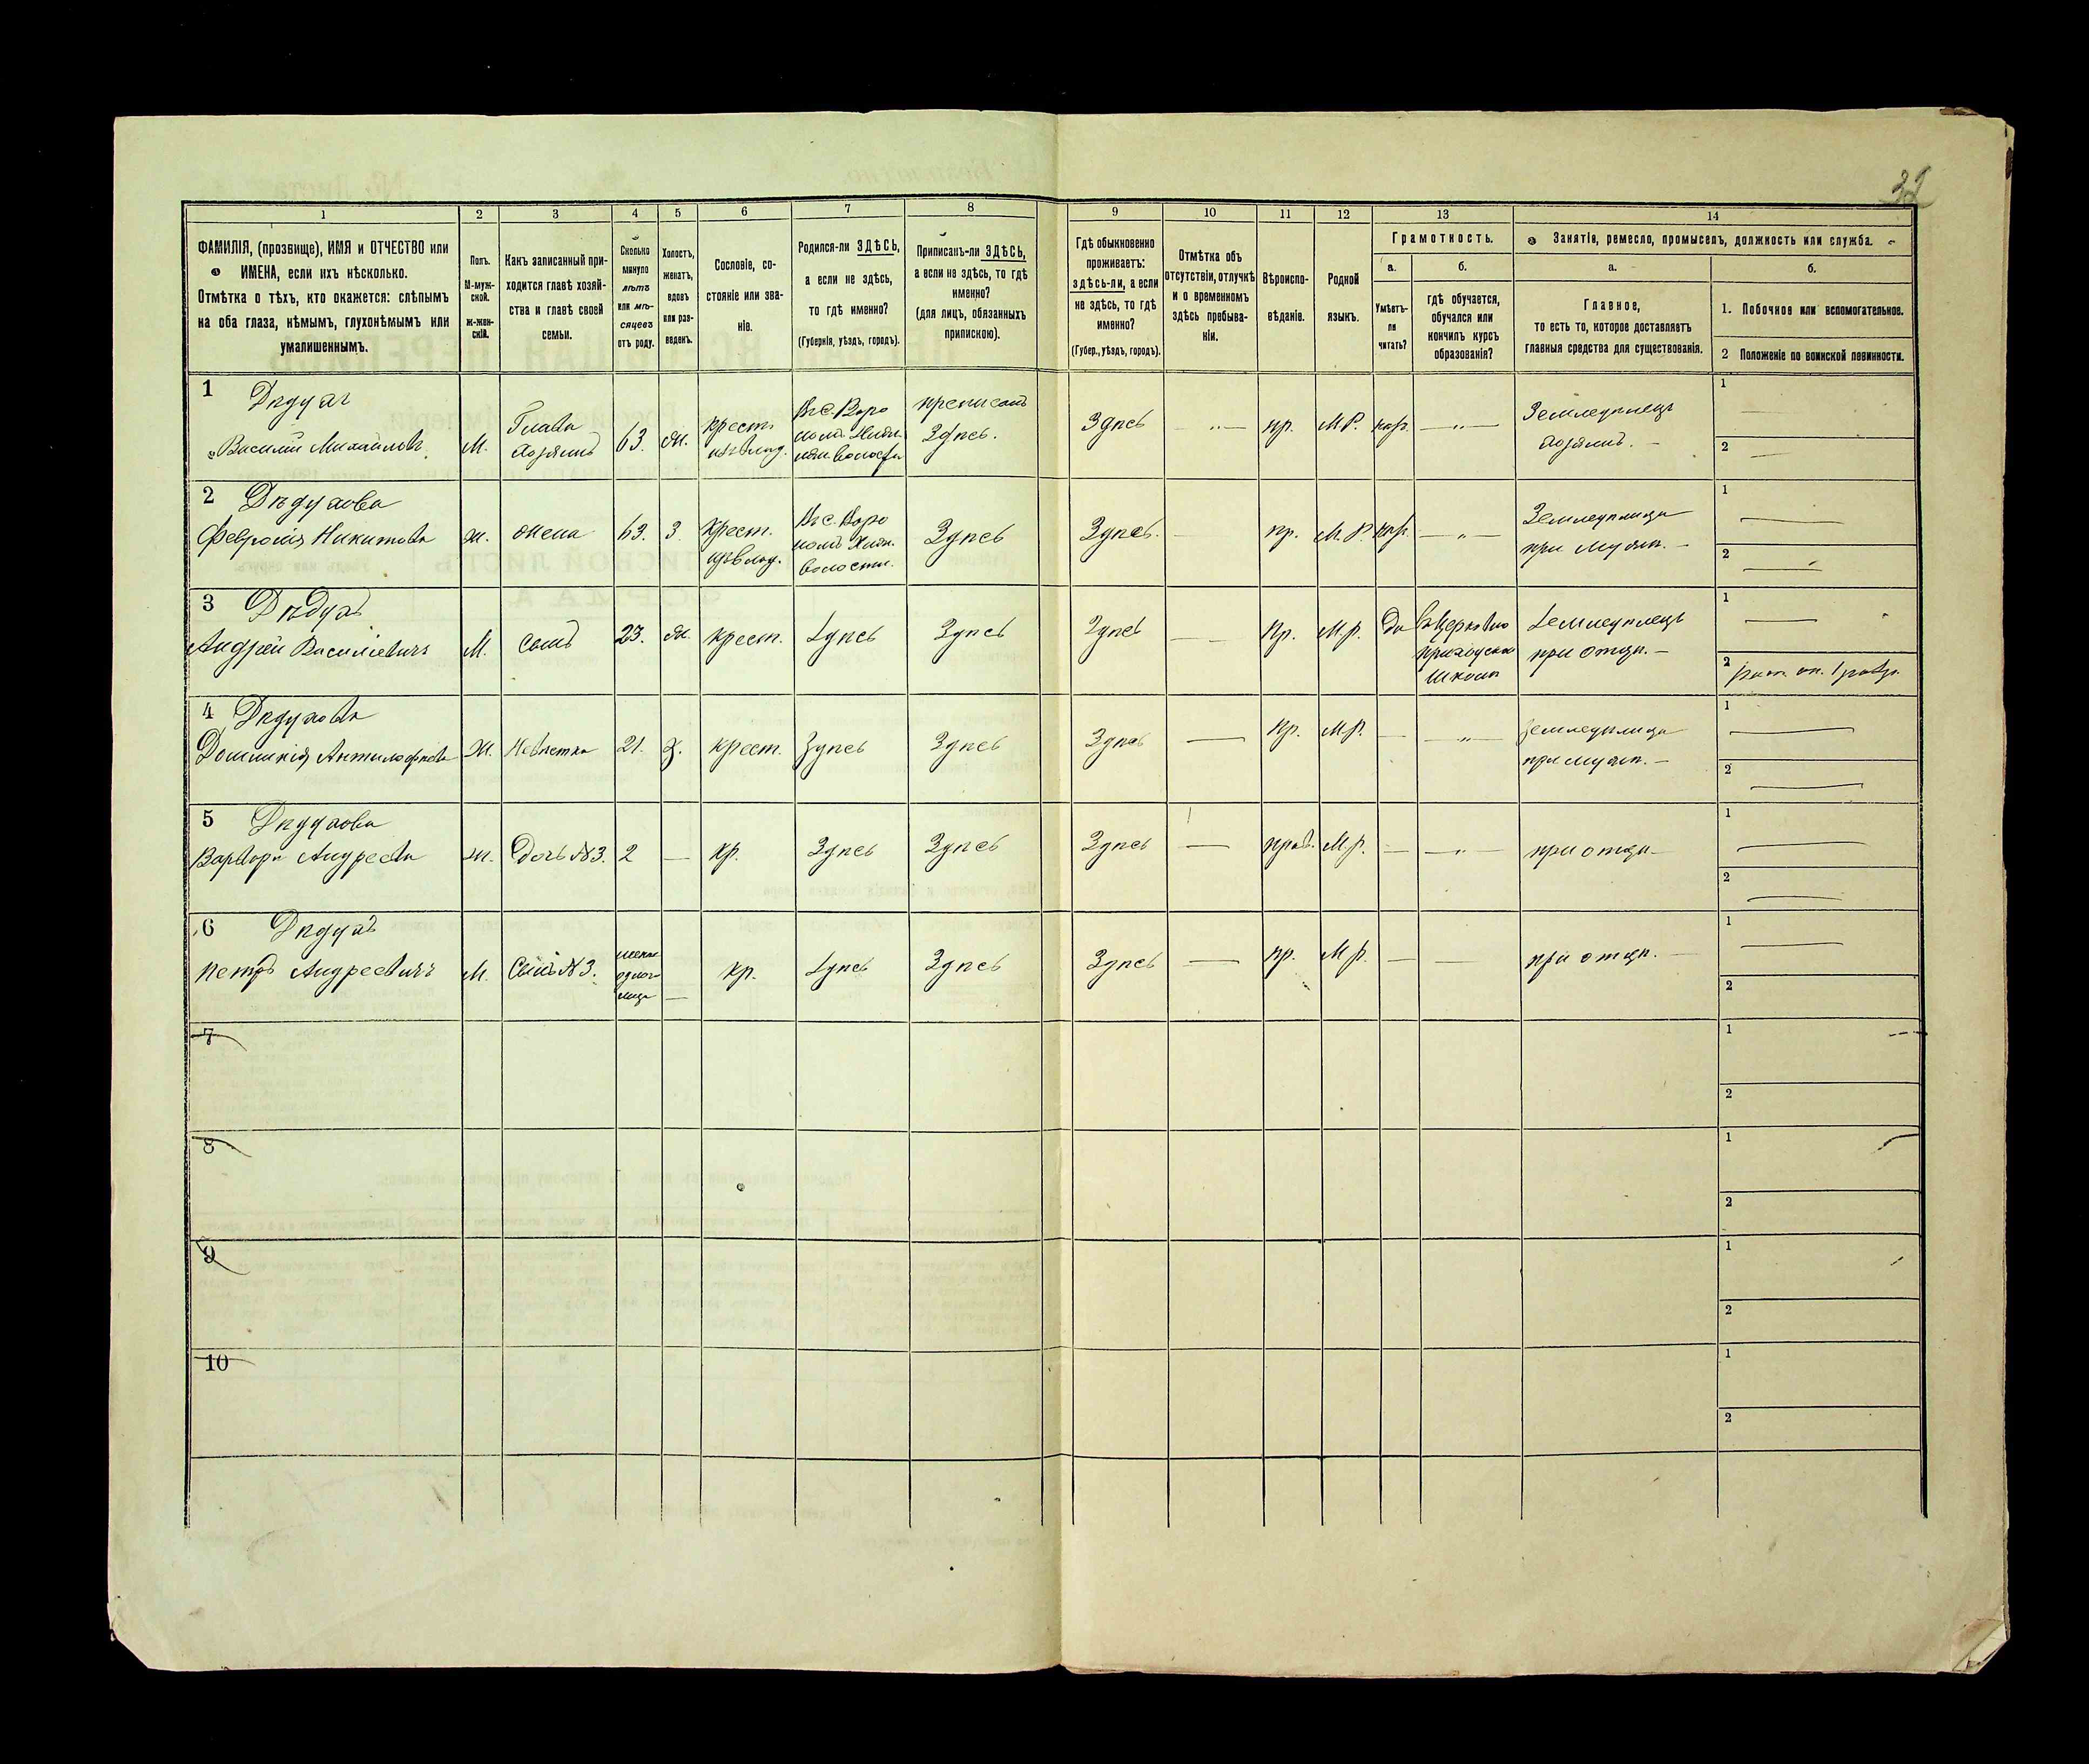 32
1 2 3 4 5 6 7 8 9 10 11 12 13 14
ФАМИЛІЯ, (прозвище), ИМЯ и ОТЧЕСТВО или
ИМЕНА, если ихъ нѣсколько.
Отмѣтка о тѣхъ, кто окажется: слѣпымъ
на оба глаза, нѣмымъ, глухонѣмымъ или
умалишеннымъ.
Полъ.
М-муж-
ской.
ж-жен-
скій.
Какъ записанный при-
ходится главѣ хозяй-
ства и главѣ своей
семьи.
Сколько
минуло
лѣтъ
или мѣ-
сяцевъ
отъ роду.
Холостъ,
женатъ,
вдовъ
или раз-
веденъ.
Сословіе, со-
стояніе или зва-
ніе.
Родился-ли ЗДѢСЬ,
а если не здѣсь,
то гдѣ именно?
(Губернія, уѣздъ, городъ).
Приписанъ-ли ЗДѢСЬ,
а если не здѣсь, то гдѣ
именно?
(для лицъ, обязанныхъ
припискою).
Гдѣ обыкновенно
проживаетъ:
здѣсь-ли, а если
не здѣсь, то гдѣ
именно?
(Губер., уѣздъ, городъ).
Отмѣтка объ
отсутствіи, отлучкѣ
и о временномъ
здѣсь пребыва-
ніи.
Вѣроиспо-
вѣданіе.
Родной
языкъ.
Грамотность.
а.
Умѣетъ-
ли
читать?
б.
гдѣ обучается,
обучался или
кончилъ курсъ
образованія?
Занятіе, ремесло, промыселъ, должность или служба.
а.
Главное,
то есть то, которое доставляетъ
главныя средства для существованія.
б.
1. Побочное или вспомогательное.
2 Положеніе по воинской повинности.
1 Дѣдухъ
Василій Михайловъ
М.
Глава
хозяинъ
63.
ж.
крест.
Въ с. Воро
волости
приписанъ
Здѣсь.
Здѣсь
— „ —
пр.
М.Р.
— „ —
Земледѣлецъ
хозяинъ. —
1
2
2 Дѣдухова
Февронія Никитова
ж.
жена
63.
З.
крест.
Въ с. Воро
волости.
Здѣсь
Здѣсь.
—
пр.
М.Р.
— „ —
Земледѣлица
при мужѣ. —
1
2
3 Дѣдухъ
Андрей Василіевичъ
М.
сынъ
23.
ж.
крест.
Здѣсь
Здѣсь
Здѣсь
— —
Пр.
М.р.
Да
Въ Церковно
приходской
школѣ
Земледѣлецъ
при отцѣ. —
1
2 рат. оп. 1 разр.
4 Дѣдухова
Домникія
Ж.
Невѣстка
21.
З.
крест.
Здѣсь
Здѣсь
Здѣсь
—
Пр.
М.р.
—
— „ —
Земледѣлица
при мужѣ. —
1
2
5 Дѣдухова
Варвара Андреева
ж.
Дочь №3.
2
—
кр.
Здѣсь
Здѣсь
Здѣсь
—
прав.
М.р.
—
— „ —
при отцѣ —
1
2
6 Дѣдухъ
Петръ Андреевичъ
М.
Сынъ №3.
—
кр.
Здѣсь
Здѣсь
Здѣсь
—
пр.
М.р.
—
—
при отцѣ. —
1
2
7
1
2
8
1
2
9
1
2
10
1
2